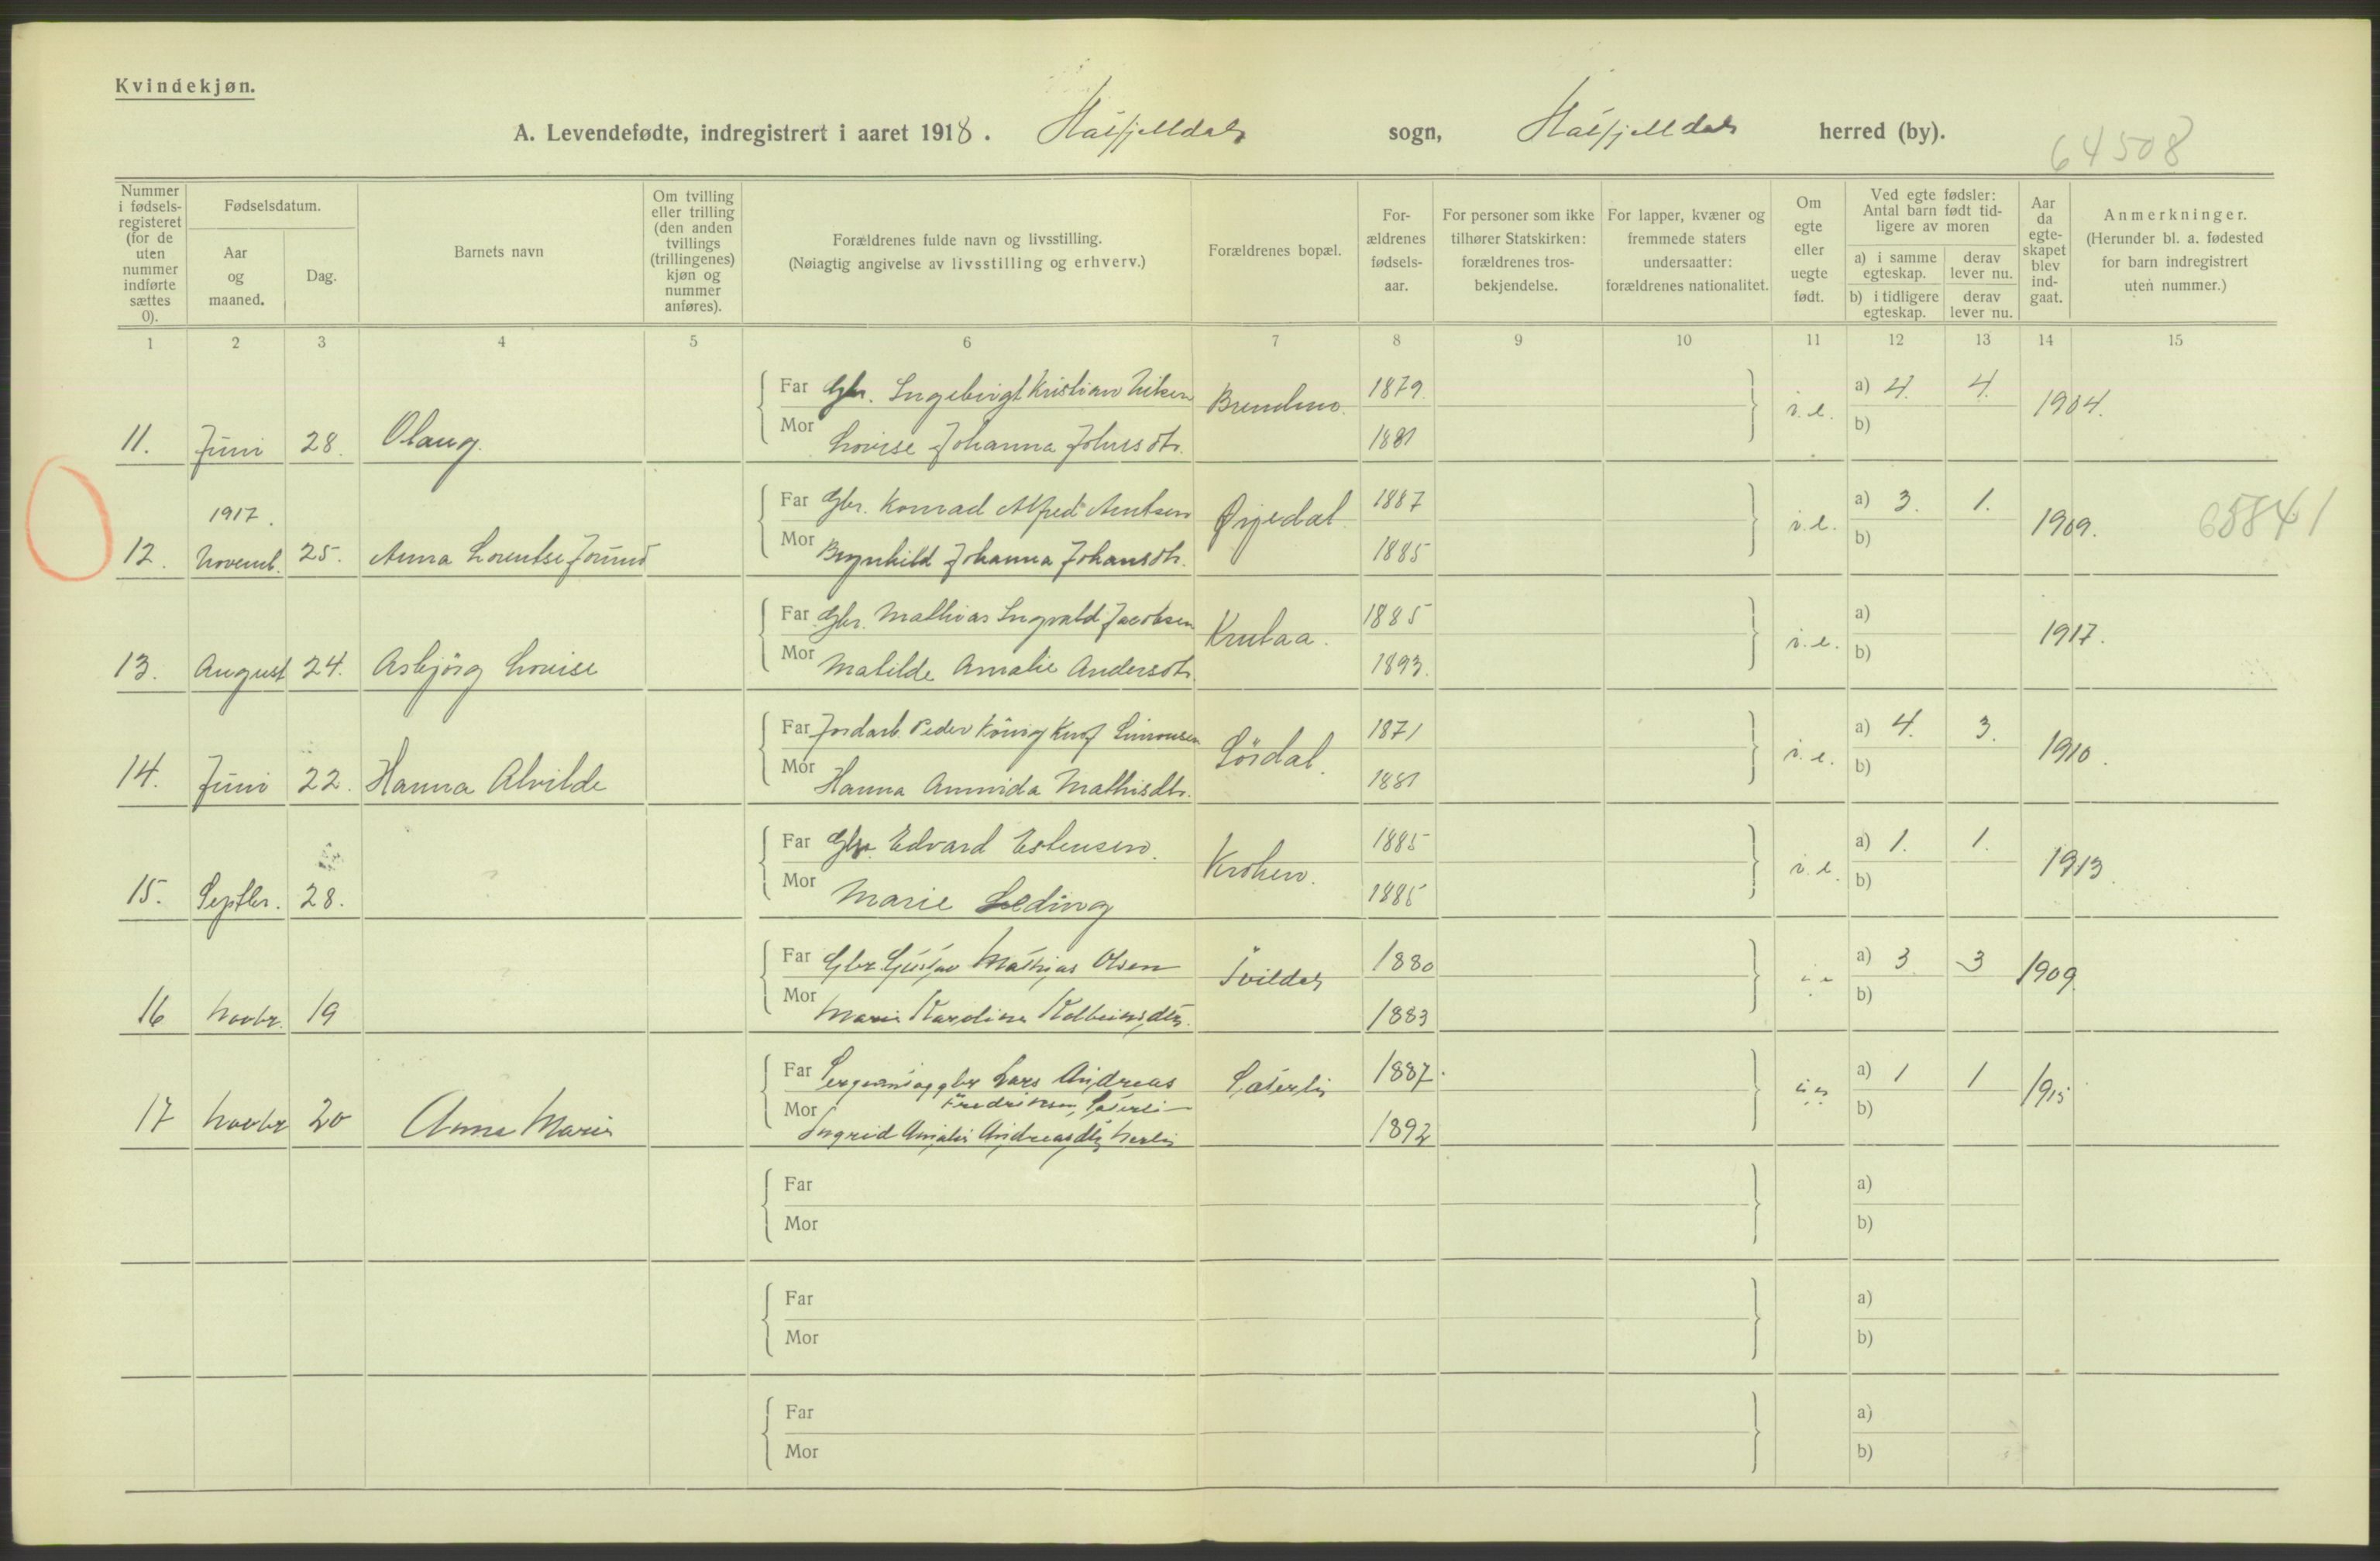 Kvindekjøn.
A. Levendefødte, indregistrert i aaret 1918. Hatfjelldals sogn, Hatfjelldals herred (by).
64508
Nummer i fødsels-registeret (for de uten nummer indførte sættes 0).
Fødselsdatum.
Aar og maaned.
Dag.
Barnets navn
Om tvilling eller trilling (den anden tvillings (trillingenes) kjøn og nummer anføres).
Forældrenes fulde navn og livsstilling.
(Nøiagtig angivelse av livsstilling og erhverv.)
Forældrenes bopæl.
For-ældrenes fødsels-aar.
For personer som ikke tilhører Statskirken: forældrenes tros-bekjendelse.
For lapper, kvæner og fremmede staters undersaatter: forældrenes nationalitet.
Om egte eller uegte født.
Ved egte fødsler: Antal barn født tid-ligere av moren
a) i samme egteskap.
derav lever nu.
b) i tidligere egteskap.
derav lever nu.
Aar da egte-skapet blev ind-gaat.
Anmerkninger.
(Herunder bl. a. fødested for barn indregistrert uten nummer.)
1 2 3 4 5 6 7 8 9 10 11 12 13 14 15
Far Gbr. Ingebrigt Kristian 1879. a) 4. 4.
11. Juni 28. Olaug. Mor Lovise Johanna Johnsdtr. 1881 i.e. b) 1904.
1917. Far Gbr. Konrad Alfred Arntsen Ørjedal. 1887 a) 3. 1. 65841
12. Novemb. 25. Anna Lorentse Mor Brynhild Johanna Johansdtr. 1885 i.e. b) 1909.
Far Gbr. Mathias Ingvald Jacobsen Krutaa. 1885 a)
13. August 24. Asbjörg Lovise Mor Matilde Amalie Andersdtr. 1893. i.e. b) 1917.
Far Jordarb. Peder Simonsen Sördal. 1871 a) 4. 3.
14. Juni 22. Hanna Alvilde Mor Hanna Mathisdtr. 1881 i.e. b) 1910.
Far Gbr. Edvard Estensen. Kroken. 1885 a) 1. 1.
15. Septbr. 28. Mor Marie 1885 i.e. b) 1913.
Far Gbr. Gustav Mathias Olsen 1880 a) 3 3
16 Novbr. 19 Mor Marie Karoline Kolbeinsdtr. 1883 b) 1909.
Far Sergeant og gbr Lars Andreas Fredriksen, Sæterli 1887. a) 1 1
17 Novbr 20 Anna Marie Mor Ingrid Amalie Andreasdtr 1892 b) 1915
Far a)
Mor b)
Far a)
Mor b)
Far a)
Mor b)